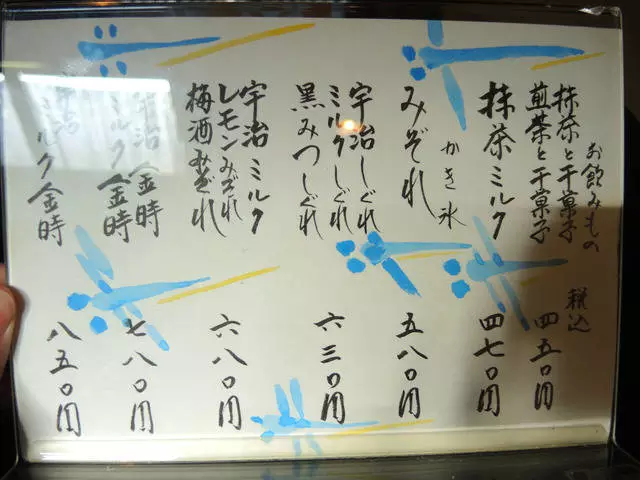 お飲みもの
税込
抹茶と干菓子
煎茶と干菓子
四五〇円
抹茶ミルク
四七〇円
かき氷
みぞれ
五八〇円
宇治しぐれ
ミルクしぐれ
黒みつしぐれ
六三〇円
宇治ミルク
レモンみぞれ
梅酒みぞれ
六八〇円
宇治金時
ミルク金時
七八〇円
宇治
ミルク金時
八五〇円